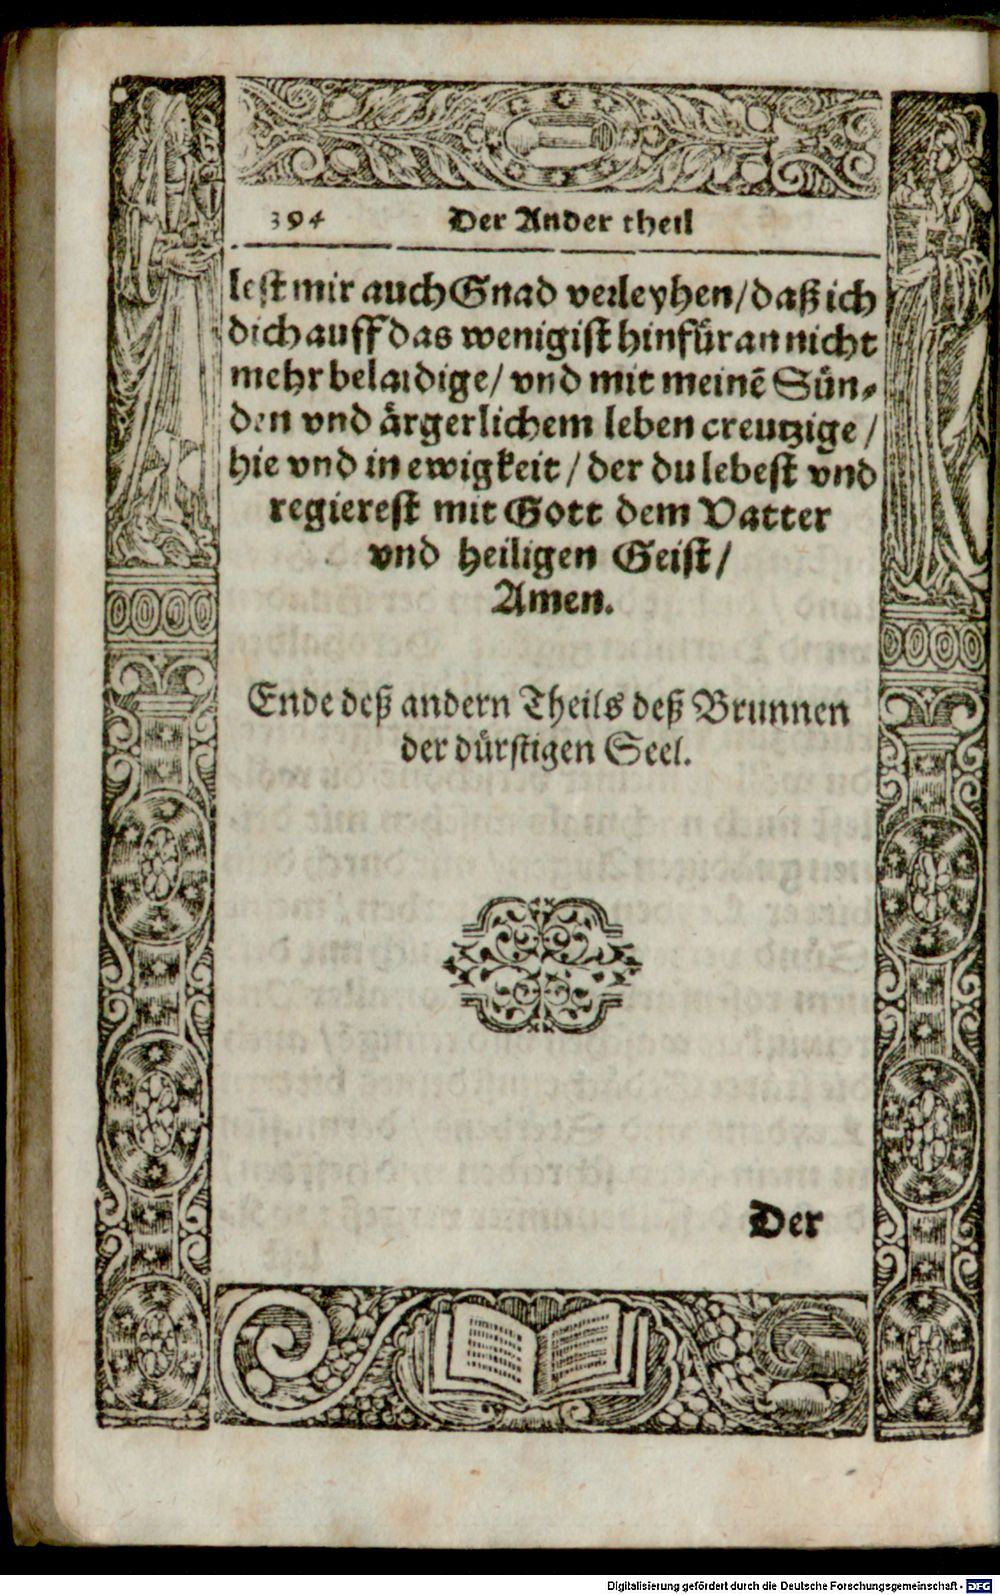 394 Der Ander theil
lest mir auch Gnad verleyhen/daß ich
dich auff das wenigist hinfüran nicht
mehr belaidige/ vnd mit meinẽ Sün⸗
den vnd ärgerlichem leben creutzige/
hie vnd in ewigkeit/ der du lebest vnd
regierest mit Gott dem Vatter
vnd heiligen Geist/
Amen.
Ende deß andern Theils deß Brunnen
der dürstigen Seel.
Der
Digitalisierung gefördert durch die Deutsche Forschungsgemeinschaft - DFG